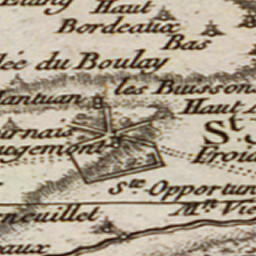 Etang Haut
Bordeaux
Bas
lée du Boulay
les Buissons
Mantuan
Haut
St
urnais
ugemont
Froid
Ste Opportun
Mln Vie
euillet
eaux